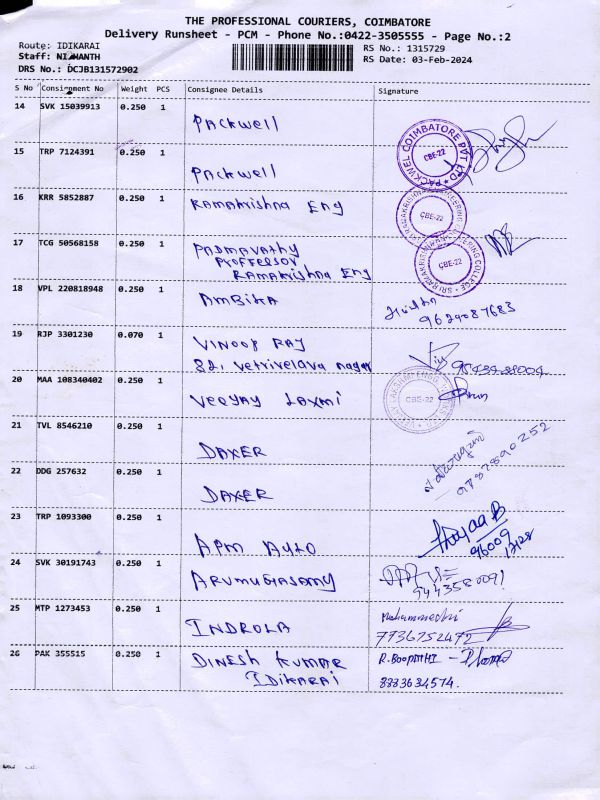 THE PROFESSIONAL COURIERS, COIMBATORE
Delivery Runsheet - PCM - Phone No.:0422-3505555 - Page No.:2
Route: IDIKARAI
RS No.: 1315729
Staff: NISHANTH
RS Date: 03-Feb-2024
DRS No.: DCJB131572902
S No Consignment No Weight PCS Consignee Details Signature
14 SVK 15039913 0.250 1
Packwell
PACKWEL COIMBATORE PVT LTD
CBE-22
15 TRP 7124391 0.250 1
Packwell
16 KRR 5852887 0.250 1
Ramakrishna Eng
CBE-22
17 TCG 50568158 0.250 1
Padmavathy
Proffersor
Ramakrishna Eng
SRI RAMAKRISHNA ENGINEERING COLLEGE
CBE-22
18 VPL 220818948 0.250 1
Ambika
9629087683
19 RJP 3301230 0.070 1
Vinoob Raj
82, Vetrivelava nagar
20 MAA 108340402 0.250 1
Veejay Laxmi
CBE-22
21 TVL 8546210 0.250 1
DAXER
9787890252
22 DDG 257632 0.250 1
DAXER
23 TRP 1093300 0.250 1
APM Auto
96009
13128
24 SVK 30191743 0.250 1
Arumugasamy
9443580091
25 MTP 1273453 0.250 1
INDROLA
7736752472
26 PAK 355515 0.250 1
Dinesh Kumar
Idikarai
R. BOOPATHI
8883634574.